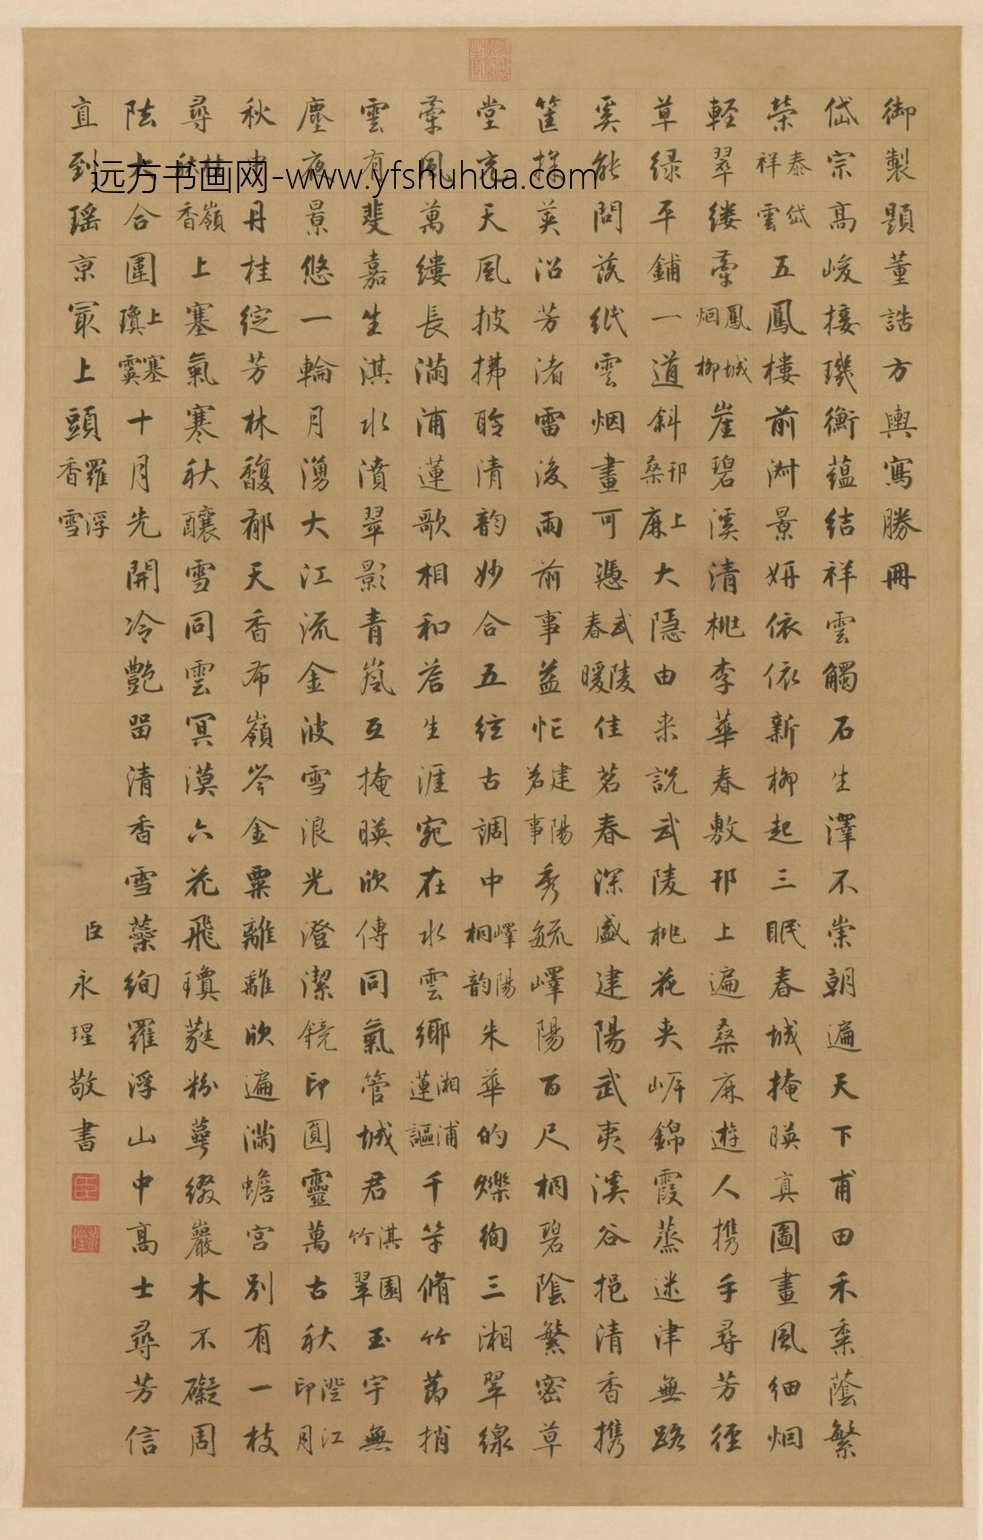 御製題董誥方輿寫勝冊
岱宗高峻接璣衡蘊結祥雲觸石生澤不崇朝遍天下甫田禾黍蔭繁
榮泰岱祥雲五鳳樓前淑景妍依依新柳起三眠春城掩映真圖畫風細烟
輕翠縷牽鳳城烟柳崖碧溪清桃李華春敷邗上遍桑麻遊人携手尋芳徑
草綠平鋪一道斜邗上桑麻大隱由来說武陵桃花夾岸錦霞蒸迷津無路
奚能問該紙雲烟畫可憑武陵春暖佳茗春深盛建陽武夷溪谷挹清香携
筐採英沿芳渚雷後雨前事益忙建陽茗事秀毓嶧陽百尺桐碧陰繁密草
堂充天風披拂聆清韵妙合五絃古調中嶧陽桐韵朱華的爍絢三湘翠線
牽風萬縷長滿浦蓮歌相和答生涯宛在水雲鄉湘浦蓮謳千竿脩竹節捎
雲有斐嘉生淇水濆翠影青嵐互掩映欣傳同氣管城君淇園竹翠玉宇無
塵夜景悠一輪月湧大江流金波雪浪光澄潔鏡印圓靈萬古秋澄江印月
秋丹桂綻芳林馥郁天香布嶺岑金粟離離欣遍滿蟾宮別有一枝
尋桂嶺秋香上塞氣寒秋釀雪同雲冥漠六花飛瓊蕤粉萼綴巖木不礙周
阹大合圍上塞瓊霙十月先開冷艷留清香雪蘂絢羅浮山中高士尋芳信
直到瑤京最上頭羅浮香雪
臣永瑆敬書
远方书画网-www.yfshuhua.com